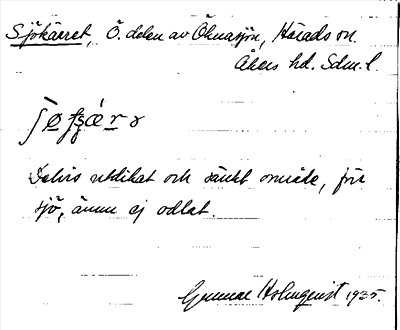 Sjökärret, Ö. delen av Öknasjön, Härads sn.
Åkers hd. Sdm. l.
Delvis utdikat och sänkt område, förr
sjö, ännu ej odlat.
Gunnar Holmquist 1935.